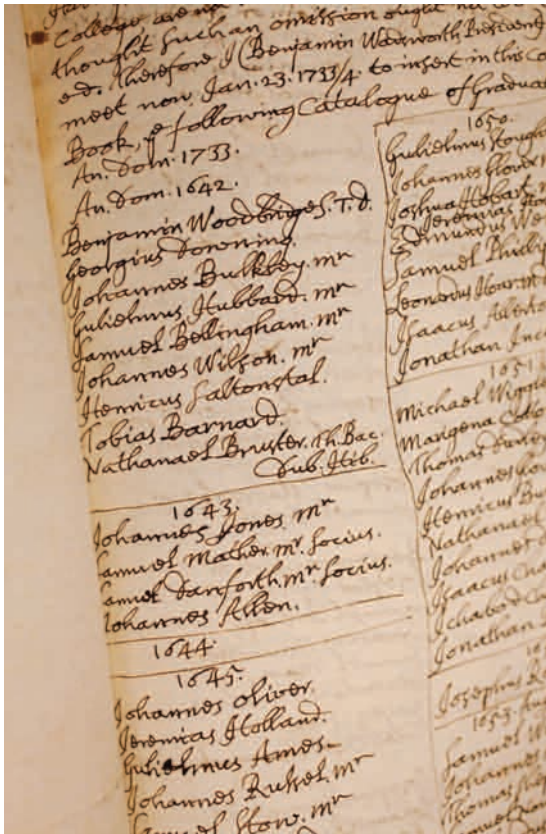 College are
thought such an omission ought
ed. Therefore I (Benjamin Wadsworth President)
meet now, Jan. 23. 1733/4. to insert in this
Book, ye following Catalogue of Graduat
An. Dom. 1733.
An. Dom. 1642.
Benjamin Woodbridge S. T. D.
Georgius Downing.
Johannes Bulkley. mr
Gulielmus Hubbard. mr
Samuel Bellingham. mr
Johannes Wilson. mr
Henricus Saltonstal.
Tobias Barnard.
Nathanael Bruster. Th. Bac.
Dub. Hib.
1643.
Johannes Jones mr
Samuel Mather. mr. Socius.
amuel Danforth. mr Socius.
Johannes Allen.
1644.
1645.
Johannes Oliver.
Jeremias Holland.
Gulielmus Ames.
Johannes Russel. mr
Samuel Stow. mr
1650.
Gulielmus Stough
Johannes Glover
Joshua Hobart
Jeremias
Edmundus We
Samuel Phillip
Leonardus Hoar. m
Isaacus Allerto
Jonathan Ince
1651.
Michael Wiggle
Marigena Cotto
Thomas
Johannes
Henricus Bu
Nathanael
Johannes
Isaacus Cha
Ichabod Ch
Jonathan
Josephus R
1653.
Samuel W
Johannes
Thomas